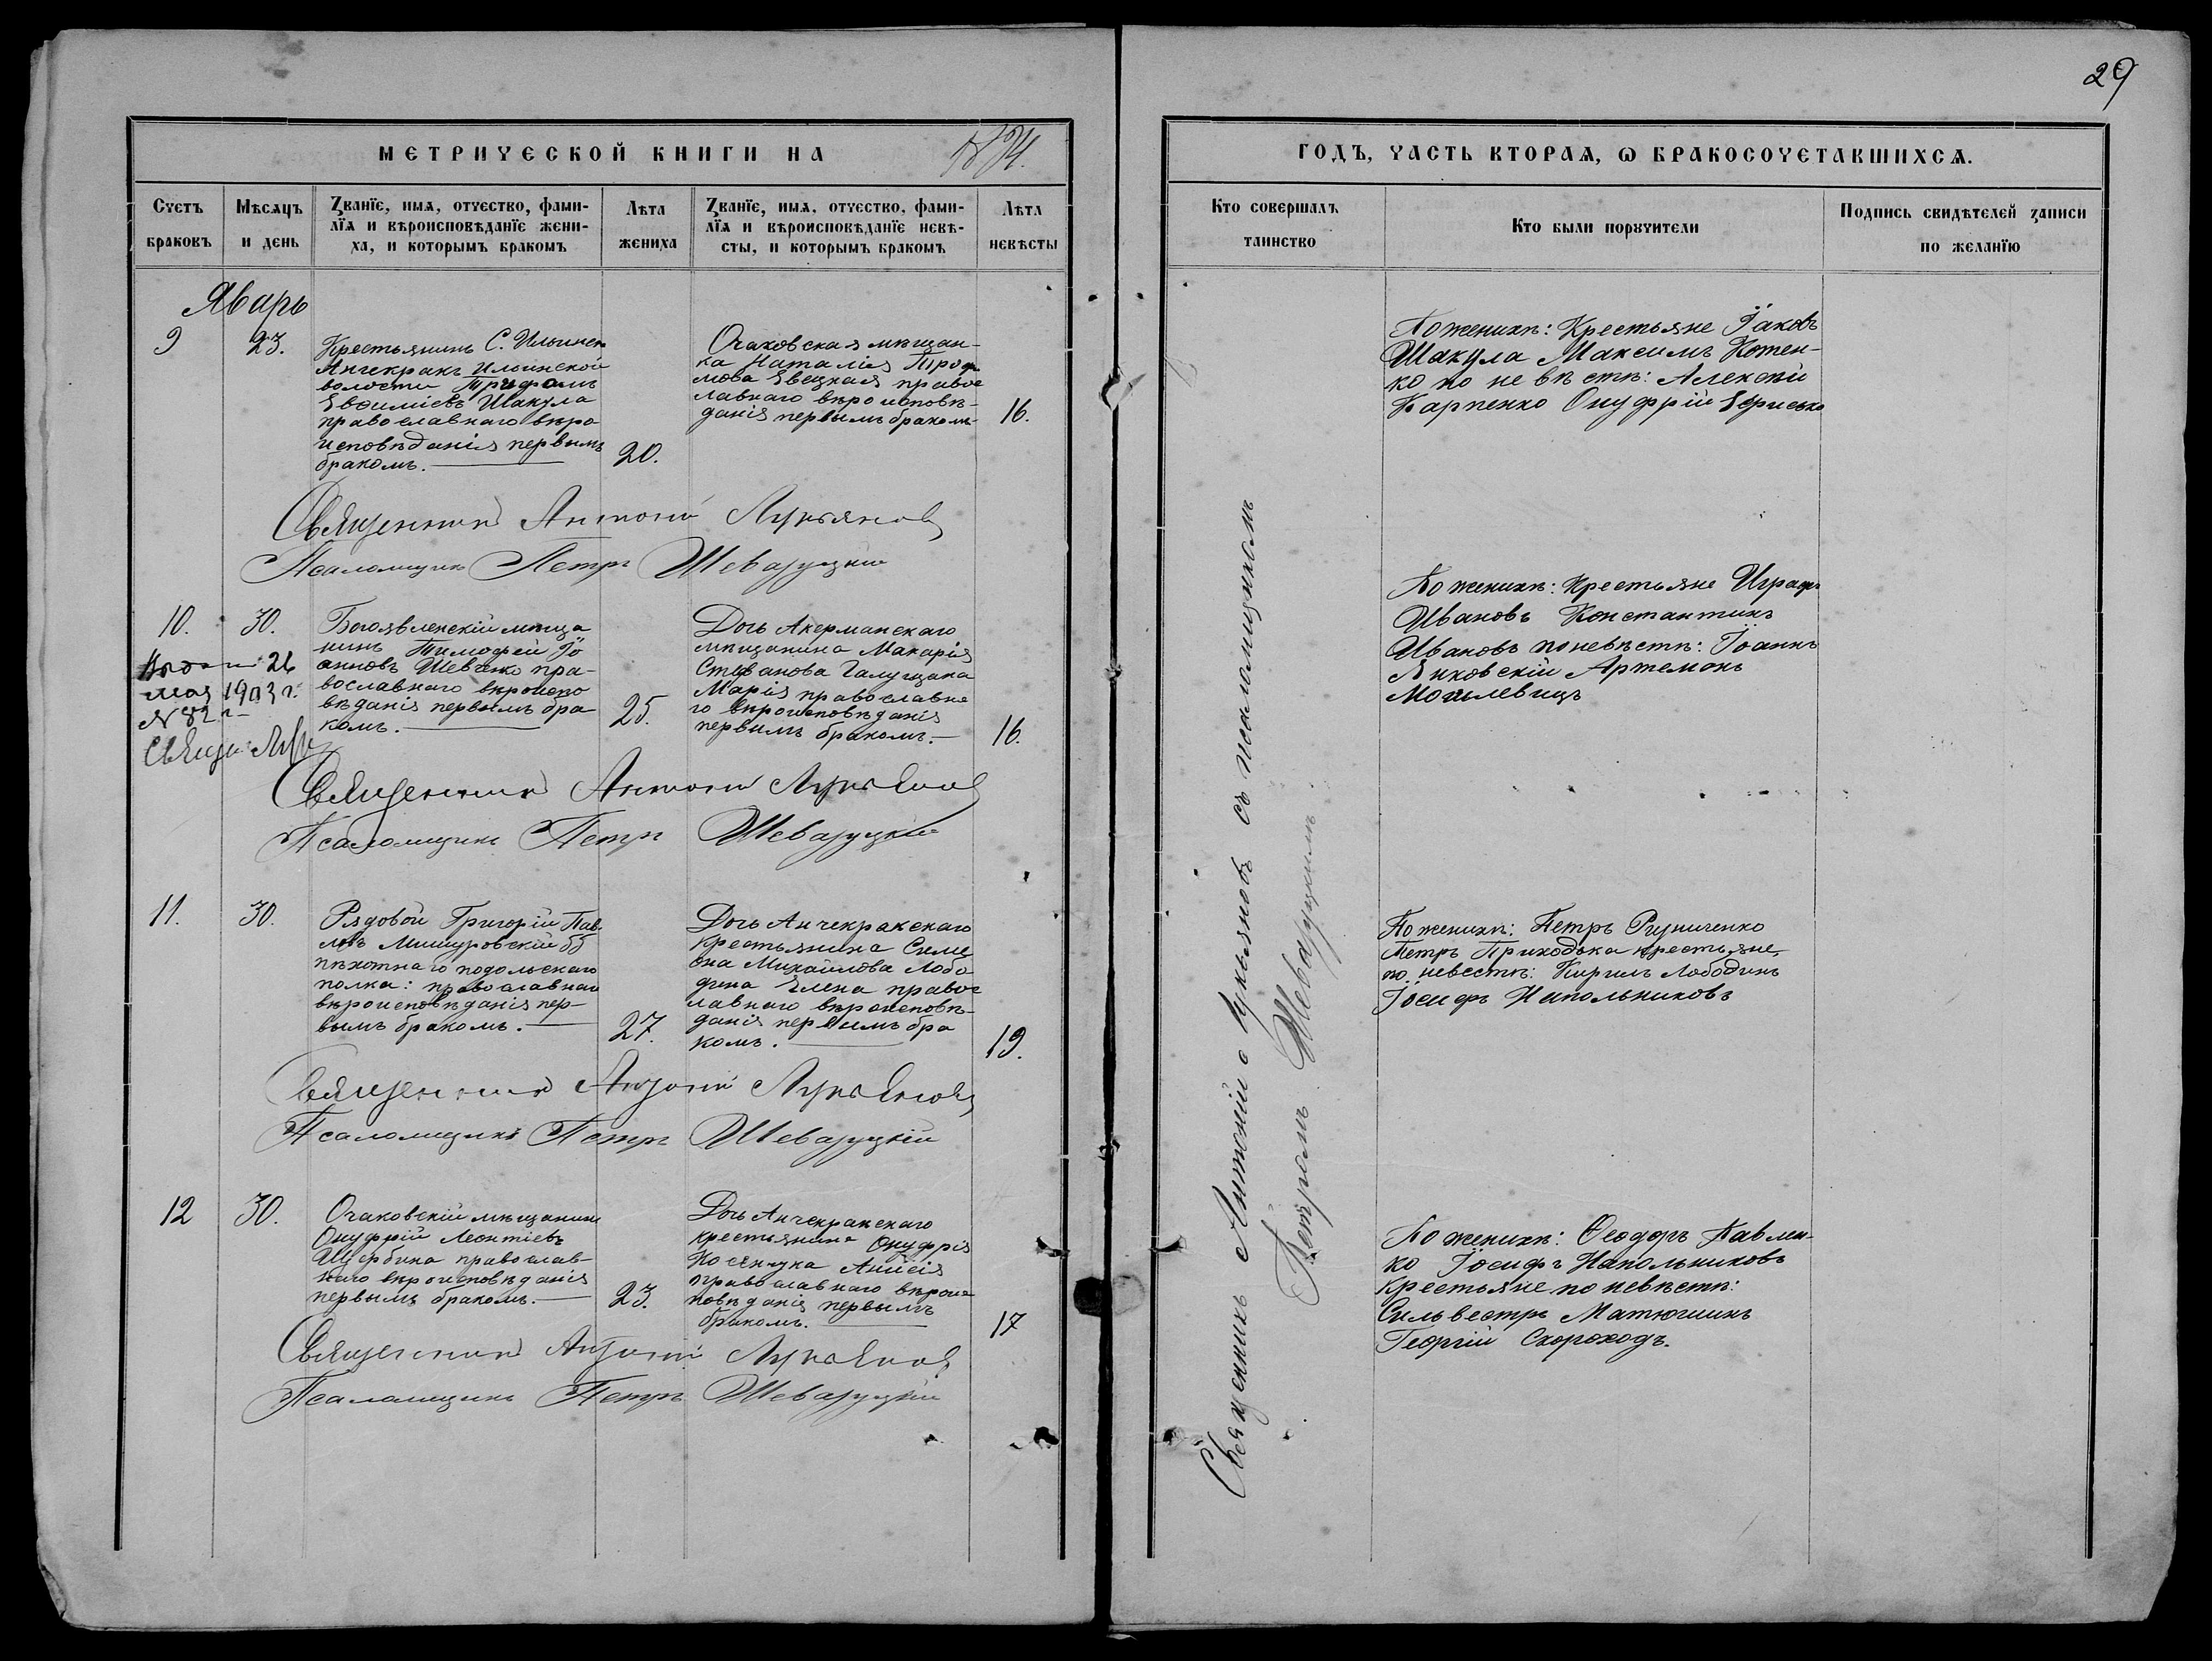 29
МЕТРИЧЕСКОЙ КНИГИ НА 1884.
ГОДЪ, ЧАСТЬ ВТОРАѦ, Ѡ БРАКОСОЧЕТАВШИХСѦ.
Счетъ браковъ
Мѣсѧцъ и день
Званїе, имѧ, отчество, фами-
лїѧ и вѣроисповѣданїе жени-
ха, и которымъ бракомъ
Лѣта жениха
Званїе, имѧ, отчество, фами-
лїѧ и вѣроисповѣданїе невѣ-
сты, и которымъ бракомъ
Лѣта невѣсты
Кто совершалъ таинство
Кто были порꙋчители
Подпись свидѣтелей записи
по желанїю
Январь
9
23.
Крестьянинъ С. Ильинск
Анчекракъ Ильинской
волости Трифонъ
Евѳиміевъ Шакула
православнаго вѣро
исповѣданія первымъ
бракомъ.
20.
Очаковская мѣщан-
ка Наталія Троф
мова Евецкая правос
лавнаго вѣроисповѣ-
данія первымъ бракомъ
16.
По женихѣ: Крестьяне Іаковъ
Шакула Максимъ Котен-
ко по невѣстѣ: Алексѣй
Карпенко Онуфрій
Священникъ Антоній Лукьяновъ
Псаломщикъ Петръ Шеваруцкій
10.
30.
Выдана 26
мая 1903 г.
N 82
Священ.
Богоявленскій мѣща
нинъ Тимофей Іо
анновъ Шевченко пра-
вославнаго вѣроиспо
вѣданія первымъ бра
комъ.
25.
Дочь Акерманскаго
мѣщанина Макарія
Стефанова Галущака
Марія православна
го вѣроисповѣданія
первымъ бракомъ.
16.
По женихѣ: Крестьяне
Ивановъ Константинъ
Ивановъ по невѣстѣ: Іоаннъ
Янковскій Артемонъ
Могилевицъ
Священникъ Антоній Лукьяновъ
Псаломщикъ Петръ Шеваруцкій
11.
30.
Рядовой Григорій Пав
ловъ Мишуровскій 55
пѣхотнаго подольскаго
полка: православнаго
вѣроисповѣданія пер-
вымъ бракомъ.
27.
Дочь Анчекракскаго
Крестьянина Симе
она Михайлова Лобо
дина Елена правос
лавнаго вѣроисповѣ-
данія первымъ бра
комъ.
19.
По женихѣ: Петръ Ризниченко
Петръ Приходька крестьяне,
по невестѣ: Кирилъ Лободинъ
Іосифъ Напольниковъ
Священникъ Антоній Лукьяновъ
Псаломщикъ Петръ Шеваруцкій
12
30.
Очаковскій мѣщанинъ
Онуфрій Леонтіевъ
Щербина православ-
наго вѣроисповѣданія
первымъ бракомъ.
23.
Дочь Анчекракскаго
крестьянина Онуфрія
Косянчука Анисія
православнаго вѣроис
повѣданія первымъ
бракомъ.
17
По женихѣ: Ѳеодоръ Павлен-
ко Іосифъ Напольниковъ
Крестьяне по невѣстѣ:
Сильвестръ Матюшинъ
Георгій Скороходъ.
Священникъ Антоній Лукьяновъ
Псаломщикъ Петръ Шеваруцкій
Священникъ Антоній Лукьяновъ съ псаломщикомъ
Петромъ Шеваруцкимъ.